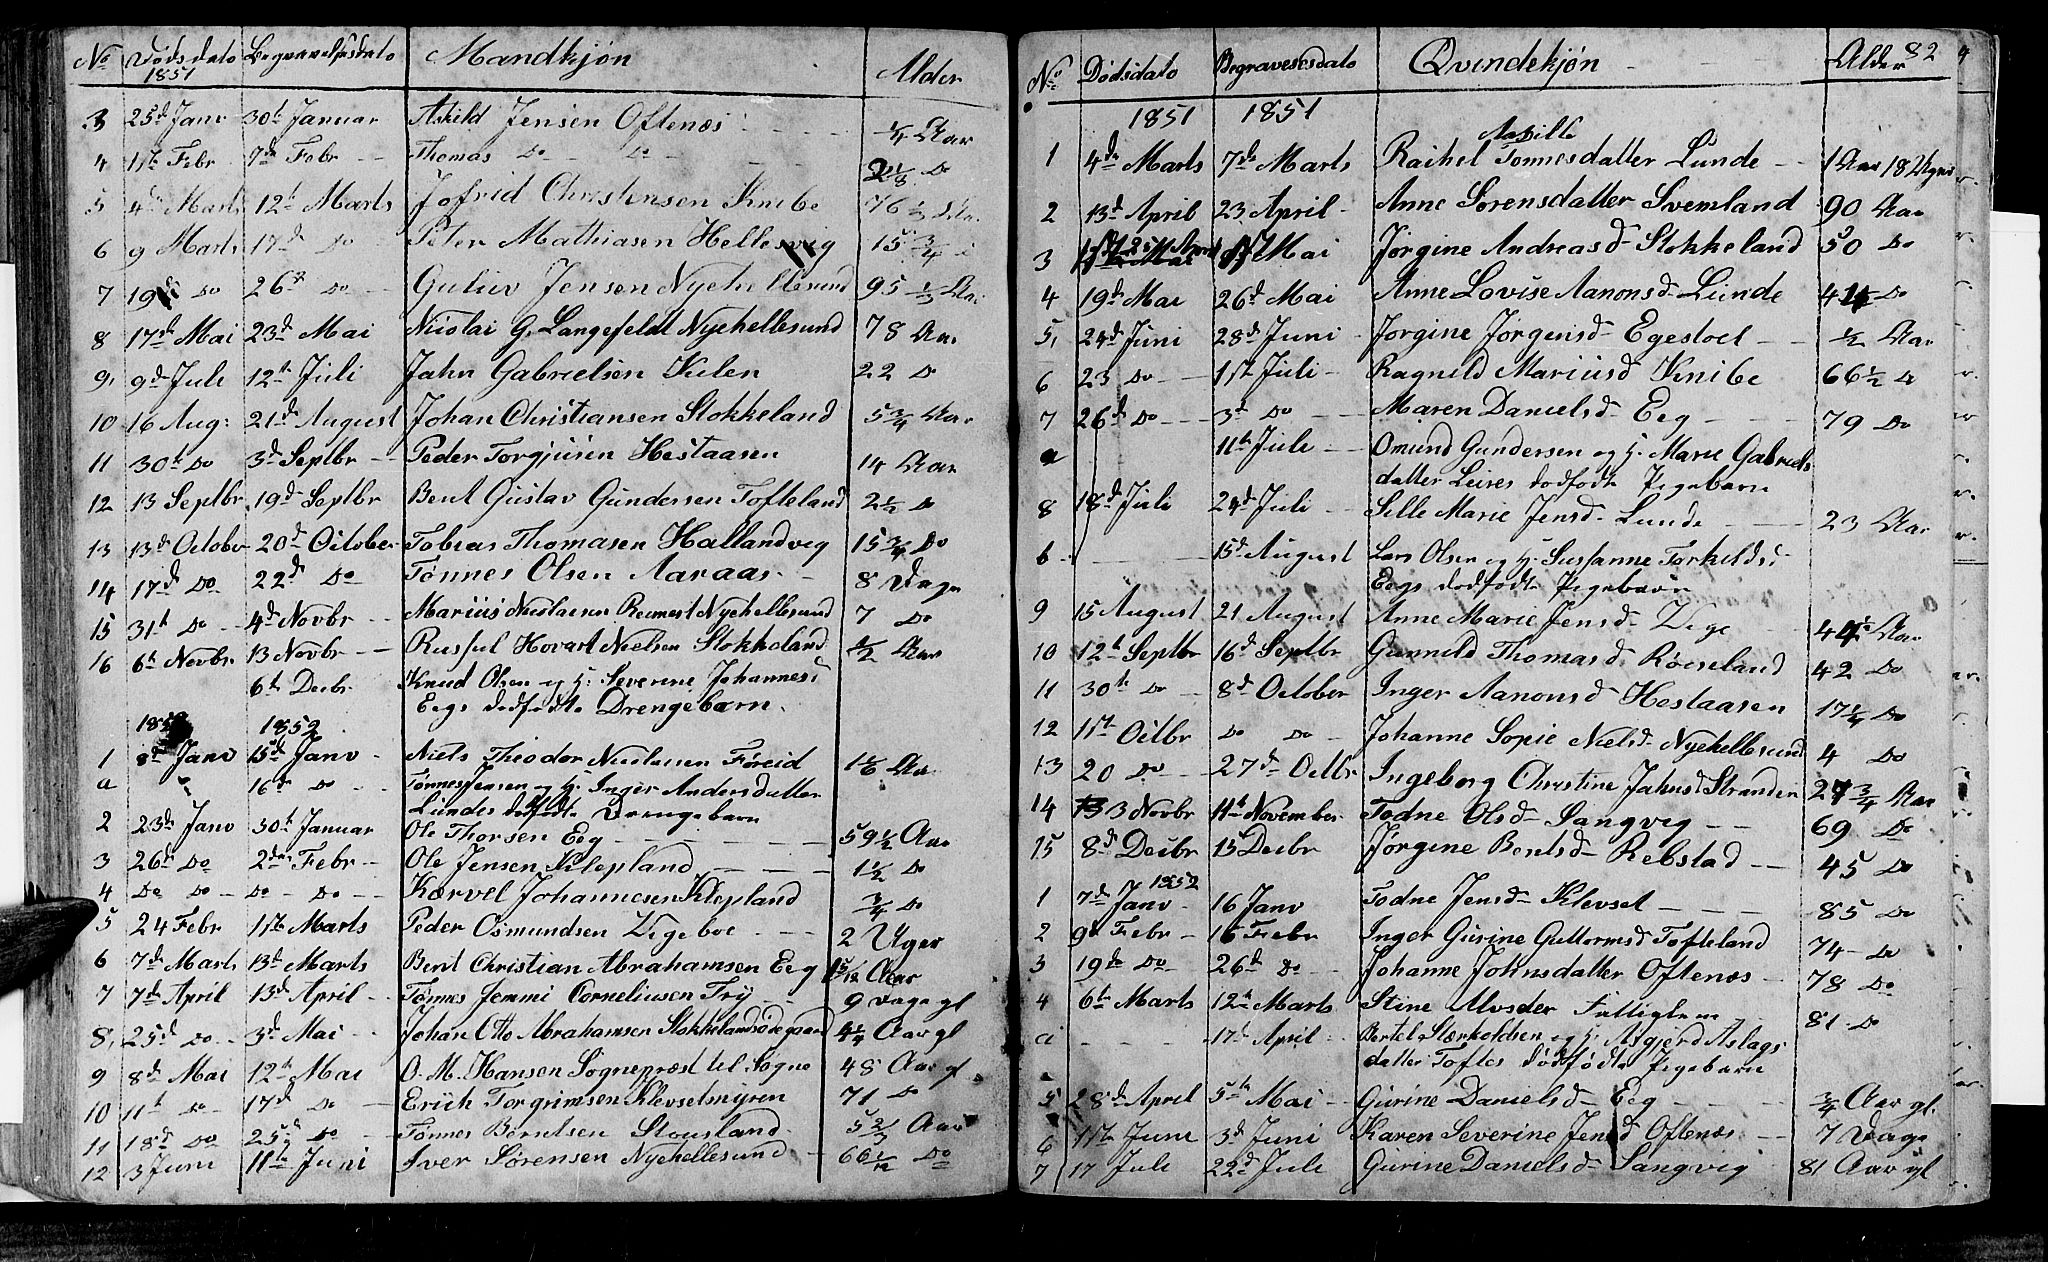 No Dødsdato Begravelsesdato Mandkjøn Alder
1851
3 25de Janv 30te Januar Askild Jensen Oftenæs ¼ Aar
4 1ste Febr 7de Febr Thomas Do Do 2⅛ Do
5 4de Marts 12te Marts Jofrid Christensen Knibe 76½ Aar
6 9 Marts 17de Do Peter Mathiasen Hellesvig 15¾
7 19de Do 26de Do Guliev Jensen Nyehellesund 95⅓ Aar
8 17de Mai 23de Mai Nicolai G. Langefeldt Nyehellesund 78 Aar
9 9de Juli 12te Juli Jahn Gabrielsen Kulen 22 Do
10 16 Aug: 21de August Johan Christiansen Stokkeland 5¾ Aar
11 30te Do 3de Septbr Peder Torgjusen Hestaasen 14 Aar
12 13 Septbr 19de Septbr Bent Gustav Gundersen Tofteland 2½ Do
13 13de October 20de October Tobias Thomasen Hallandvig 15¾ Do
14 17de Do 22de Do Tønnes Olsen Aaraas 8 Dage
15 31te Do 4de Novbr Marius Nicolaisen Reimest Nyehellesund 7 Do
16 6te Novbr 13 Novbr Rusful Hovart Nielsen Stokkeland ½ Aar
6te Decbr Knud Olsen og H: Severine Johannesd
Eegs dødfødte Drengebarn.
1852 1852
1 8de Janv 15de Janv Niels Theodor Nicolaisen Føreid 1⅙ Aar
a 16de Do Tønnes Jensen og H: Inger Andersdatter
Lundes dødfødte Drengebarn
2 23de Janv 30te Januar Ole Thorsen Eeg 59½ Aar
3 26de Do 2den Febr Ole Jensen Klepland 1½ Do
4 Do Do Do Do Karvel Johannesen Klepland ¾ Do
5 24 Febr 1ste Marts Peder Osmundsen Vegeboe 2 Uger
6 7de Marts 13de Marts Bent Christian Abrahamsen Eeg Aar
7 7de April 13de April Tønnes Jemmi Corneliusen Try 9 Dage gl
8 25de Do 3de Mai Johan Otto Abrahamsen Stokkelandsødegaard 4¼ Aar gl
9 8de Mai 12te Mai O. M. Hansen Sognepræst til Søgne 48 Aar gl
10 11te Do 17de Do Erich Torgrimsen Klevselmyren 71 Do
11 18de Do 25de Do Tønnes Berntsen Stousland 5⅔ Aar
12 3 Juni 11te Juni Iver Sørensen Nyehellesund 66 1/12 Do
No Dødsdato Begravelsesdato Qvindekjøn Alder 82
1851 1851
1 4de Marts 7de Marts Rachel Tønnesdatter Lunde 1 Aar 18 Uger
2 13de April 23 April Anne Sørensdatter Svemland 90 Aar
3 Mai Jørgine Andreasd Stokkeland 50 Do
4 19de Mai 26de Mai Anne Lovise Aanonsd Lunde 41 Do
5 22de Juni 28de Juni Jørgine Jørgensd Egestoel ½ Aar
6 23 Do 1ste Juli Ragnild Mariusd Knibe 66½ Do
7 26de Do 3de Do Maren Danielsd Eeg 79 Do
a 11te Juli Omund Gundersen og H: Marie Gabriels
datter Leires dødfødte Pigebarn
8 18de Juli 24de Juli Sille Marie Jensd Lunde 23 Aar
b 15de August Lars Olsen og H: Susanne Torkildsd
Eegs dødfødte Pigebarn
9 15 August 21 August Anne Marie Jensd Vige 44 Aar
10 12te Septbr 16de Septbr Gunnild Thomasd Røeseland 42 Do
11 30te Do 8de October Inger Aanonsd Hestaasen 17¼ Do
12 1ste Octbr Do Do Johanne Sopie Nielsd Nyehellesund 4 Do
13 20 Do 27de Octbr Ingeborg Christine Jahnsd Stranden 27¾ Aar
14 3 Novbr 11te November Todne Olsd Sangvig 69 Do
15 8de Decbr 15 Decbr Jørgine Bentsd Rebstad 45 Do
1852
1 7de Janv 16 Janv Todne Jensd Klevset 85 Do
2 9de Febr 16 Febr Inger Gurine Guttormsd Tofteland 74 Do
3 19de Do 26de Do Johanne Johnsdatter Oftenæs 78 Do
4 6te Marts 12te Marts Stine Ulvsder Fattiglem 81 Do
a 17de April Bertel Stærkoldsen og H: Asgjerd Aslags
datter Toftes Dødfødte Pigebarn
5 28de April 5te Mai Gurine Danielsd Eeg ¾ Aar gl.
6 1ste Juni 3de Juni Karen Severine Jensd Oftenæs 7 Dage
7 17 Juli 22de Juli Gurine Danielsd Sangvig 81 Aar gl